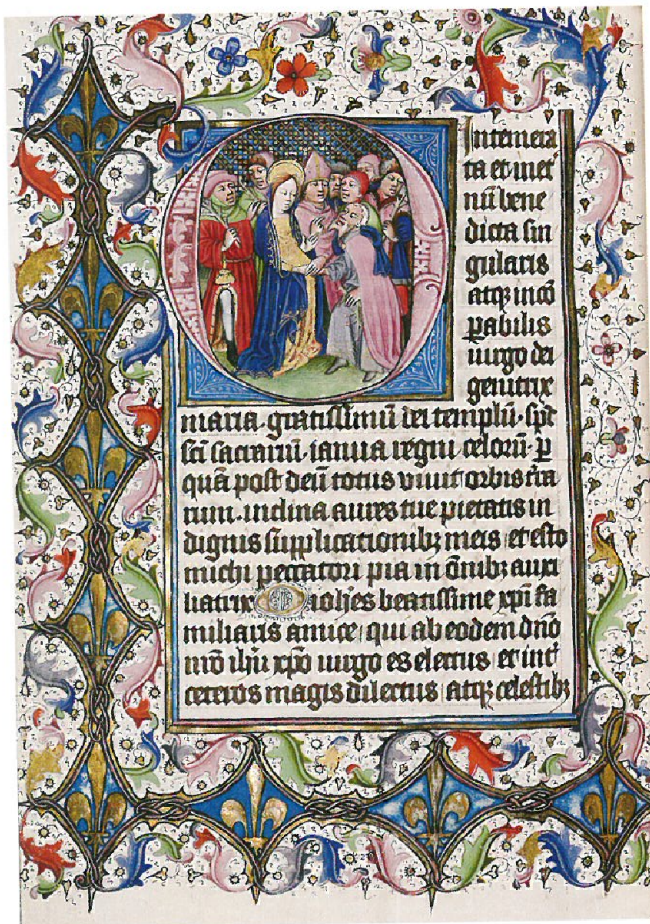 Intemera
ta et inet̾
nū bene
dicta sin
gularis
atqꝫ incō
ꝑabilis
uirgo dei
genitrix
maria gratissimū dei templū spūs
sc̄i sacrariū ianua regni celorū ꝑ
quā post deū totus uiuit orbis tera
rum inclina aures tue pietatis in
dignis supplicationibꝫ meis et esto
michi peccatori pia in ōmibꝫ auxi
liatrix O iohes beatissime xp̄i fa
miliaris amice qui ab eodem dn̄o
nr̄o ihū xp̄o uirgo es electus et int̾
ceteros magis dilectus atqꝫ celestibꝫ